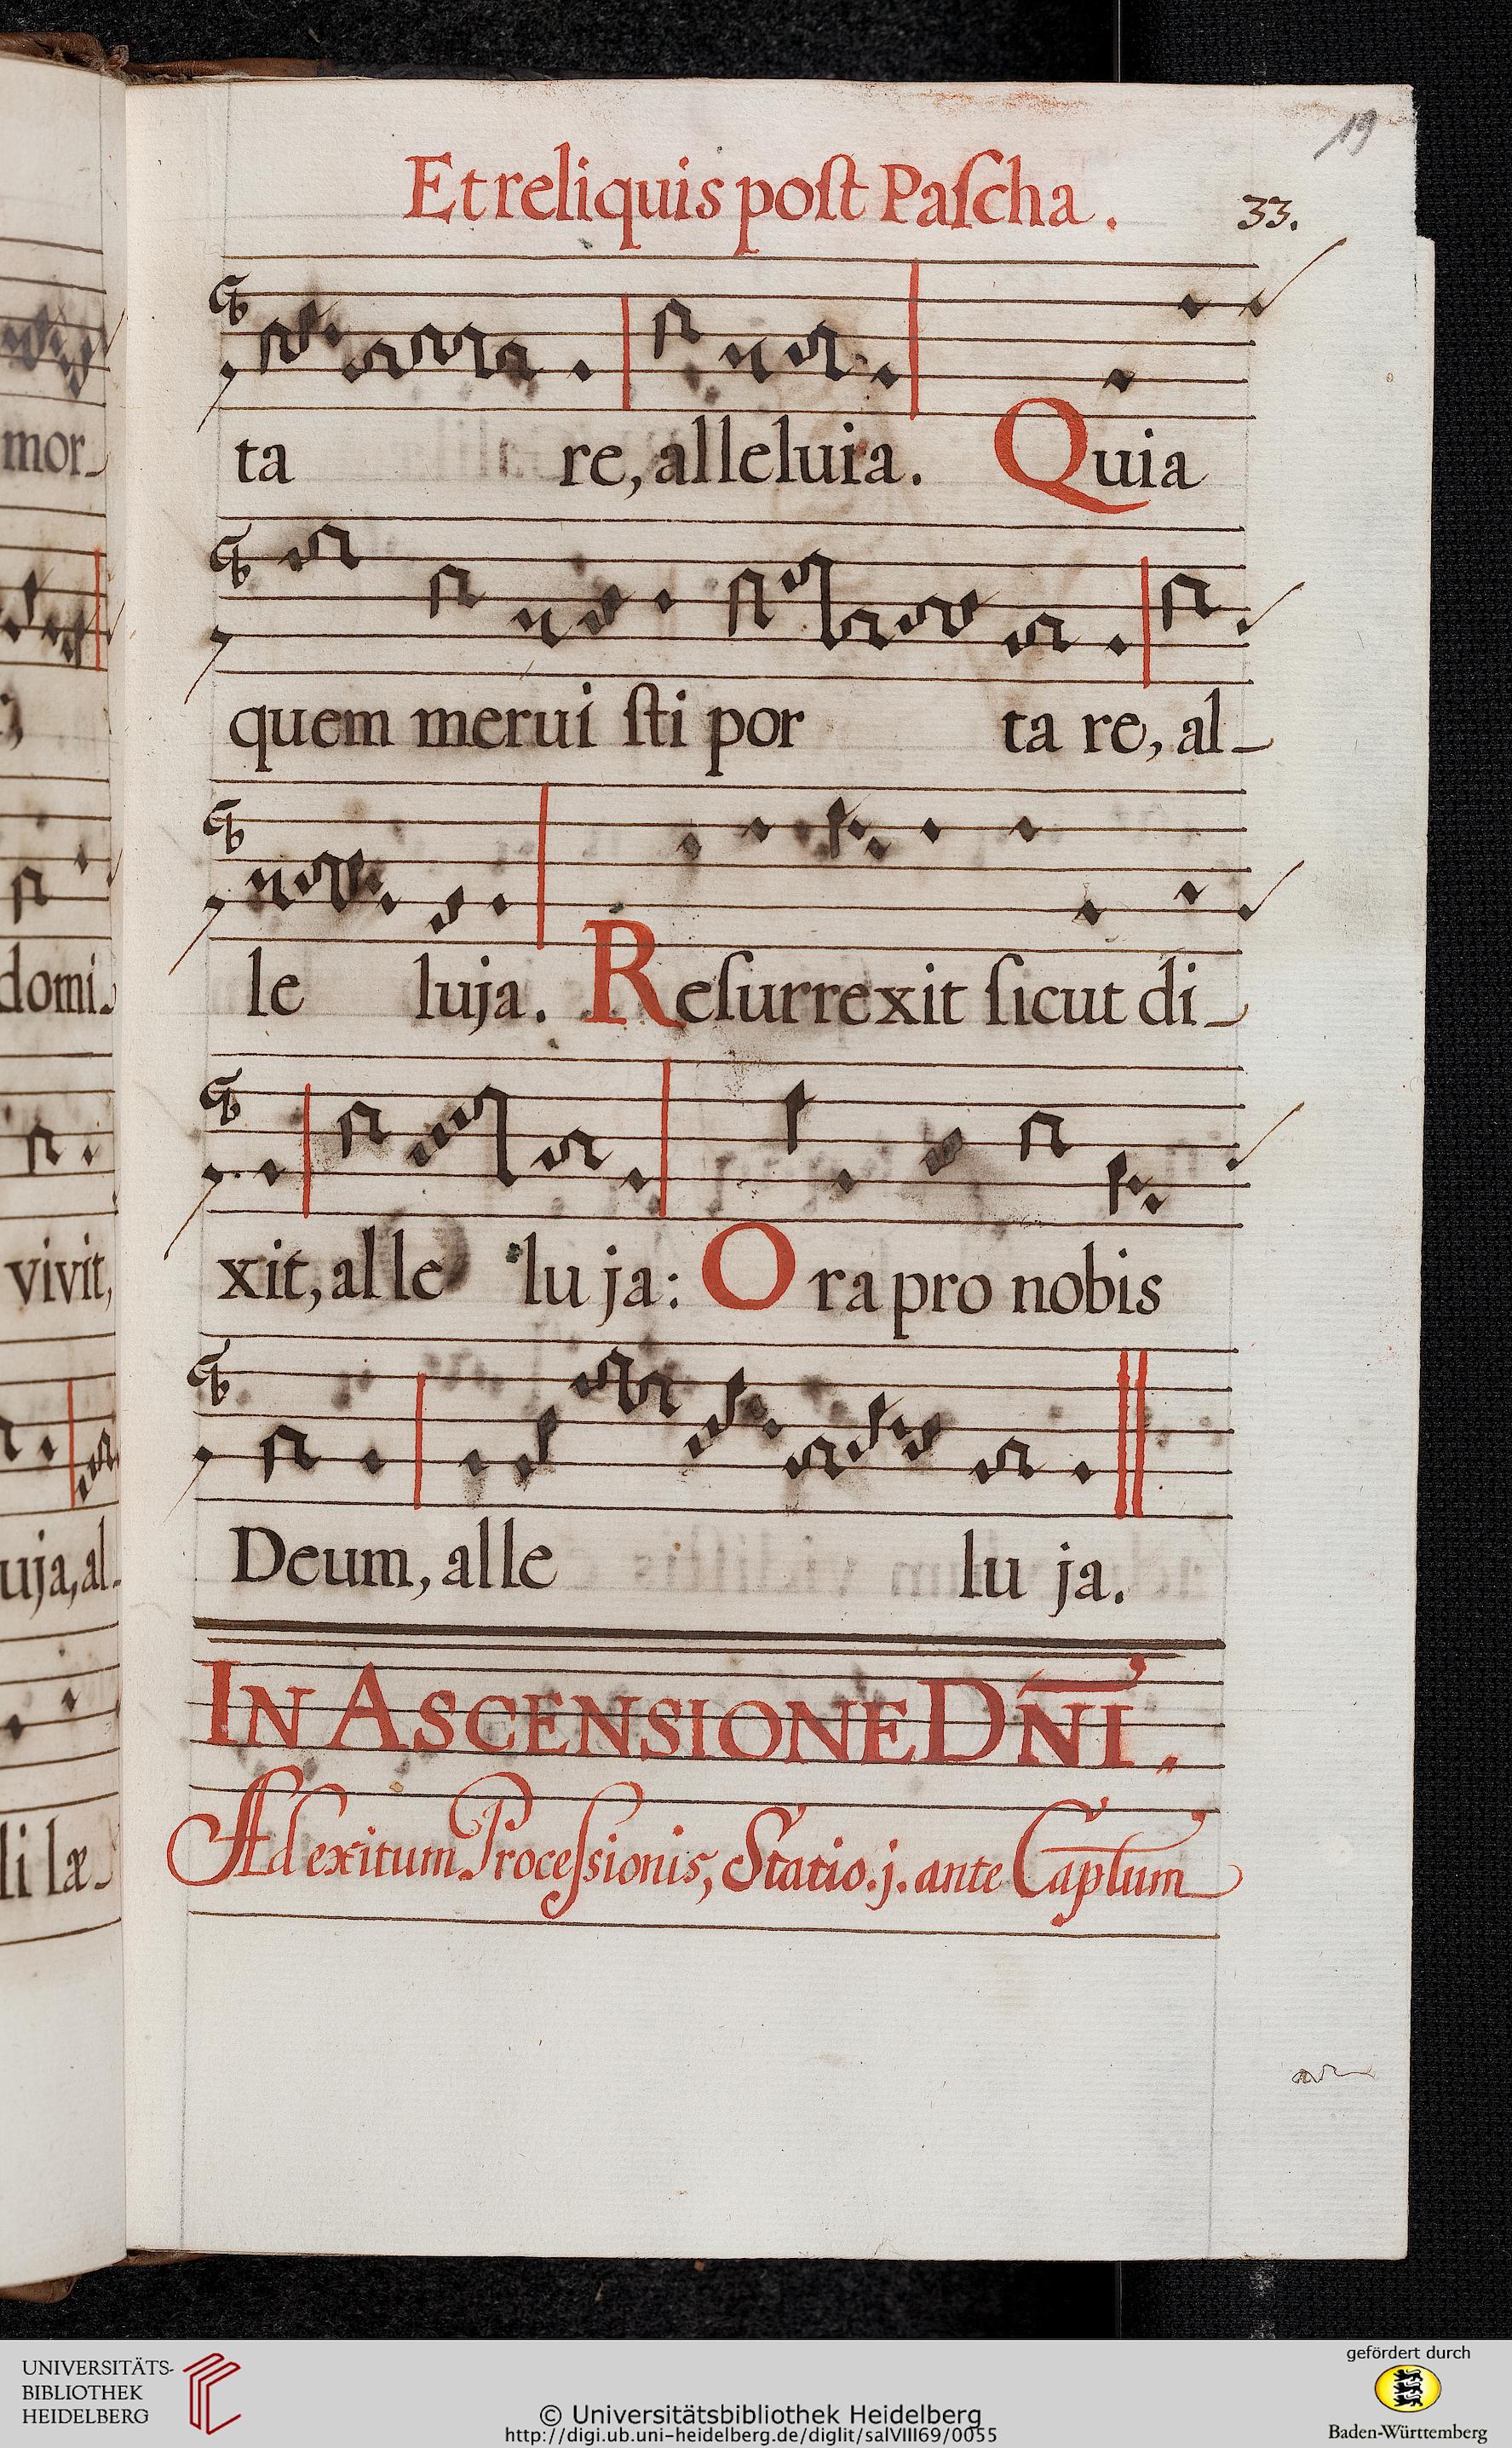 mor-
domi-
vivit,
uja, al-
li læ-
19
Et reliquis poſt Paſcha.
33.
ta re, alleluia. Quia
quem merui ſti por ta re, al-
le luja. Reſurrexit ſicut di-
xit, alle lu ja: Ora pro nobis
Deum, alle lu ja.
IN ASCENSIONE DÑI.
Ad exitum Proceſsionis, Statio. j. ante Caplum
UNIVERSITÄTS-
BIBLIOTHEK
HEIDELBERG
© Universitätsbibliothek Heidelberg
http://digi.ub.uni-heidelberg.de/diglit/salVIII69/0055
gefördert durch
Baden-Württemberg